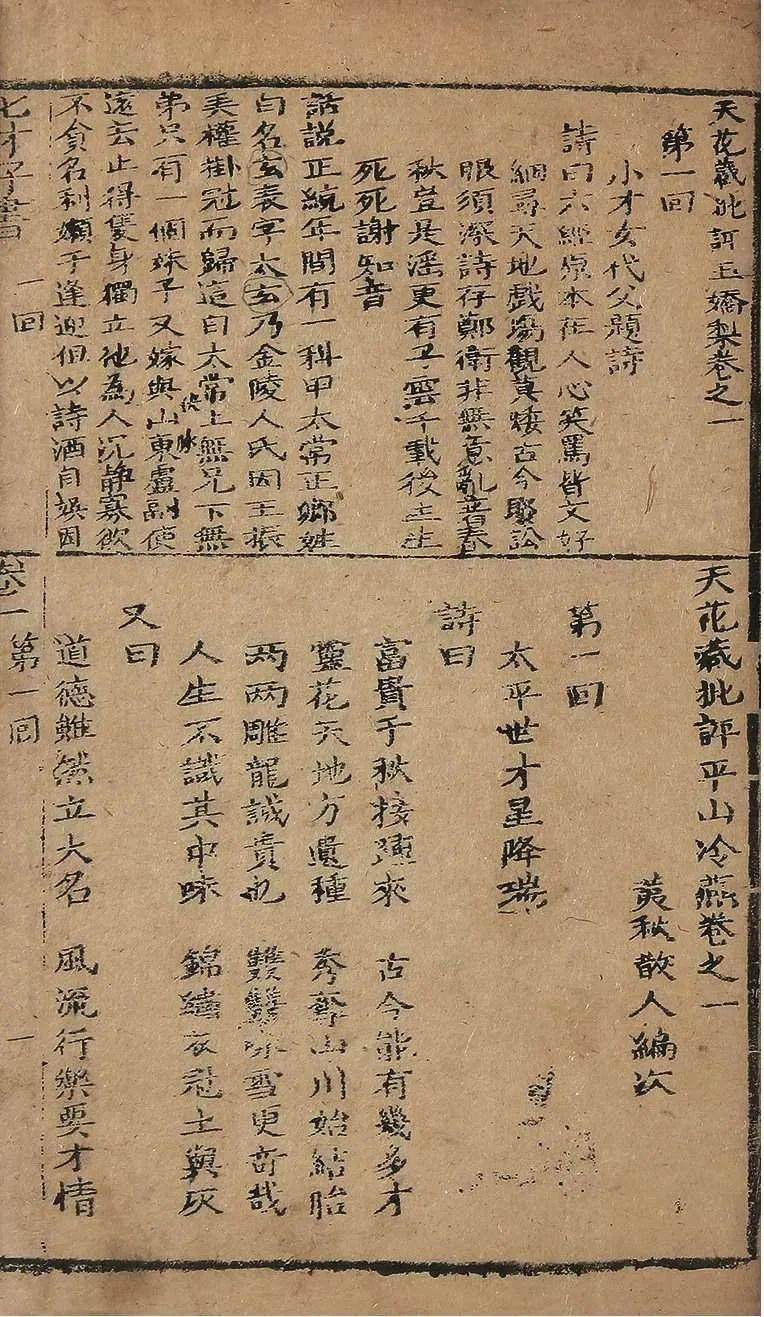 天花藏批評玉嬌梨卷之一
第一回
小才女代父題詩
詩曰六經原本在人心笑罵皆文好
細尋天地戲塲觀莫矮古今聚訟
眼須深詩存鄭衛非無意亂著春
秋豈是滛更有子雲千載後生生
死死謝知音
話說正統年間有一科甲太常正卿姓
白名玄表字太玄乃金陵人氏因王振
美權掛冠而歸這白太常上無兄下無
弟只有一個妹子又嫁與山東盧副使
遠去止得隻身獨立他為人沉靜寡欲
不貪名利懶于逢迎但以詩酒自娛因
七才子書 一回
天花藏批評平山冷燕卷之一
荑秋散人編次
第一回
太平世才星降瑞
詩曰
富貴千秋接踵來 古今能有幾多才
靈花天地方遺種 秀奪山川始結胎
兩兩雕龍誠貴也 雙雙咏雪更奇哉
人生不識其中味 錦繡衣冠土與灰
又曰
道德雖然立大名 風流行樂要才情
卷之一 第一回 一